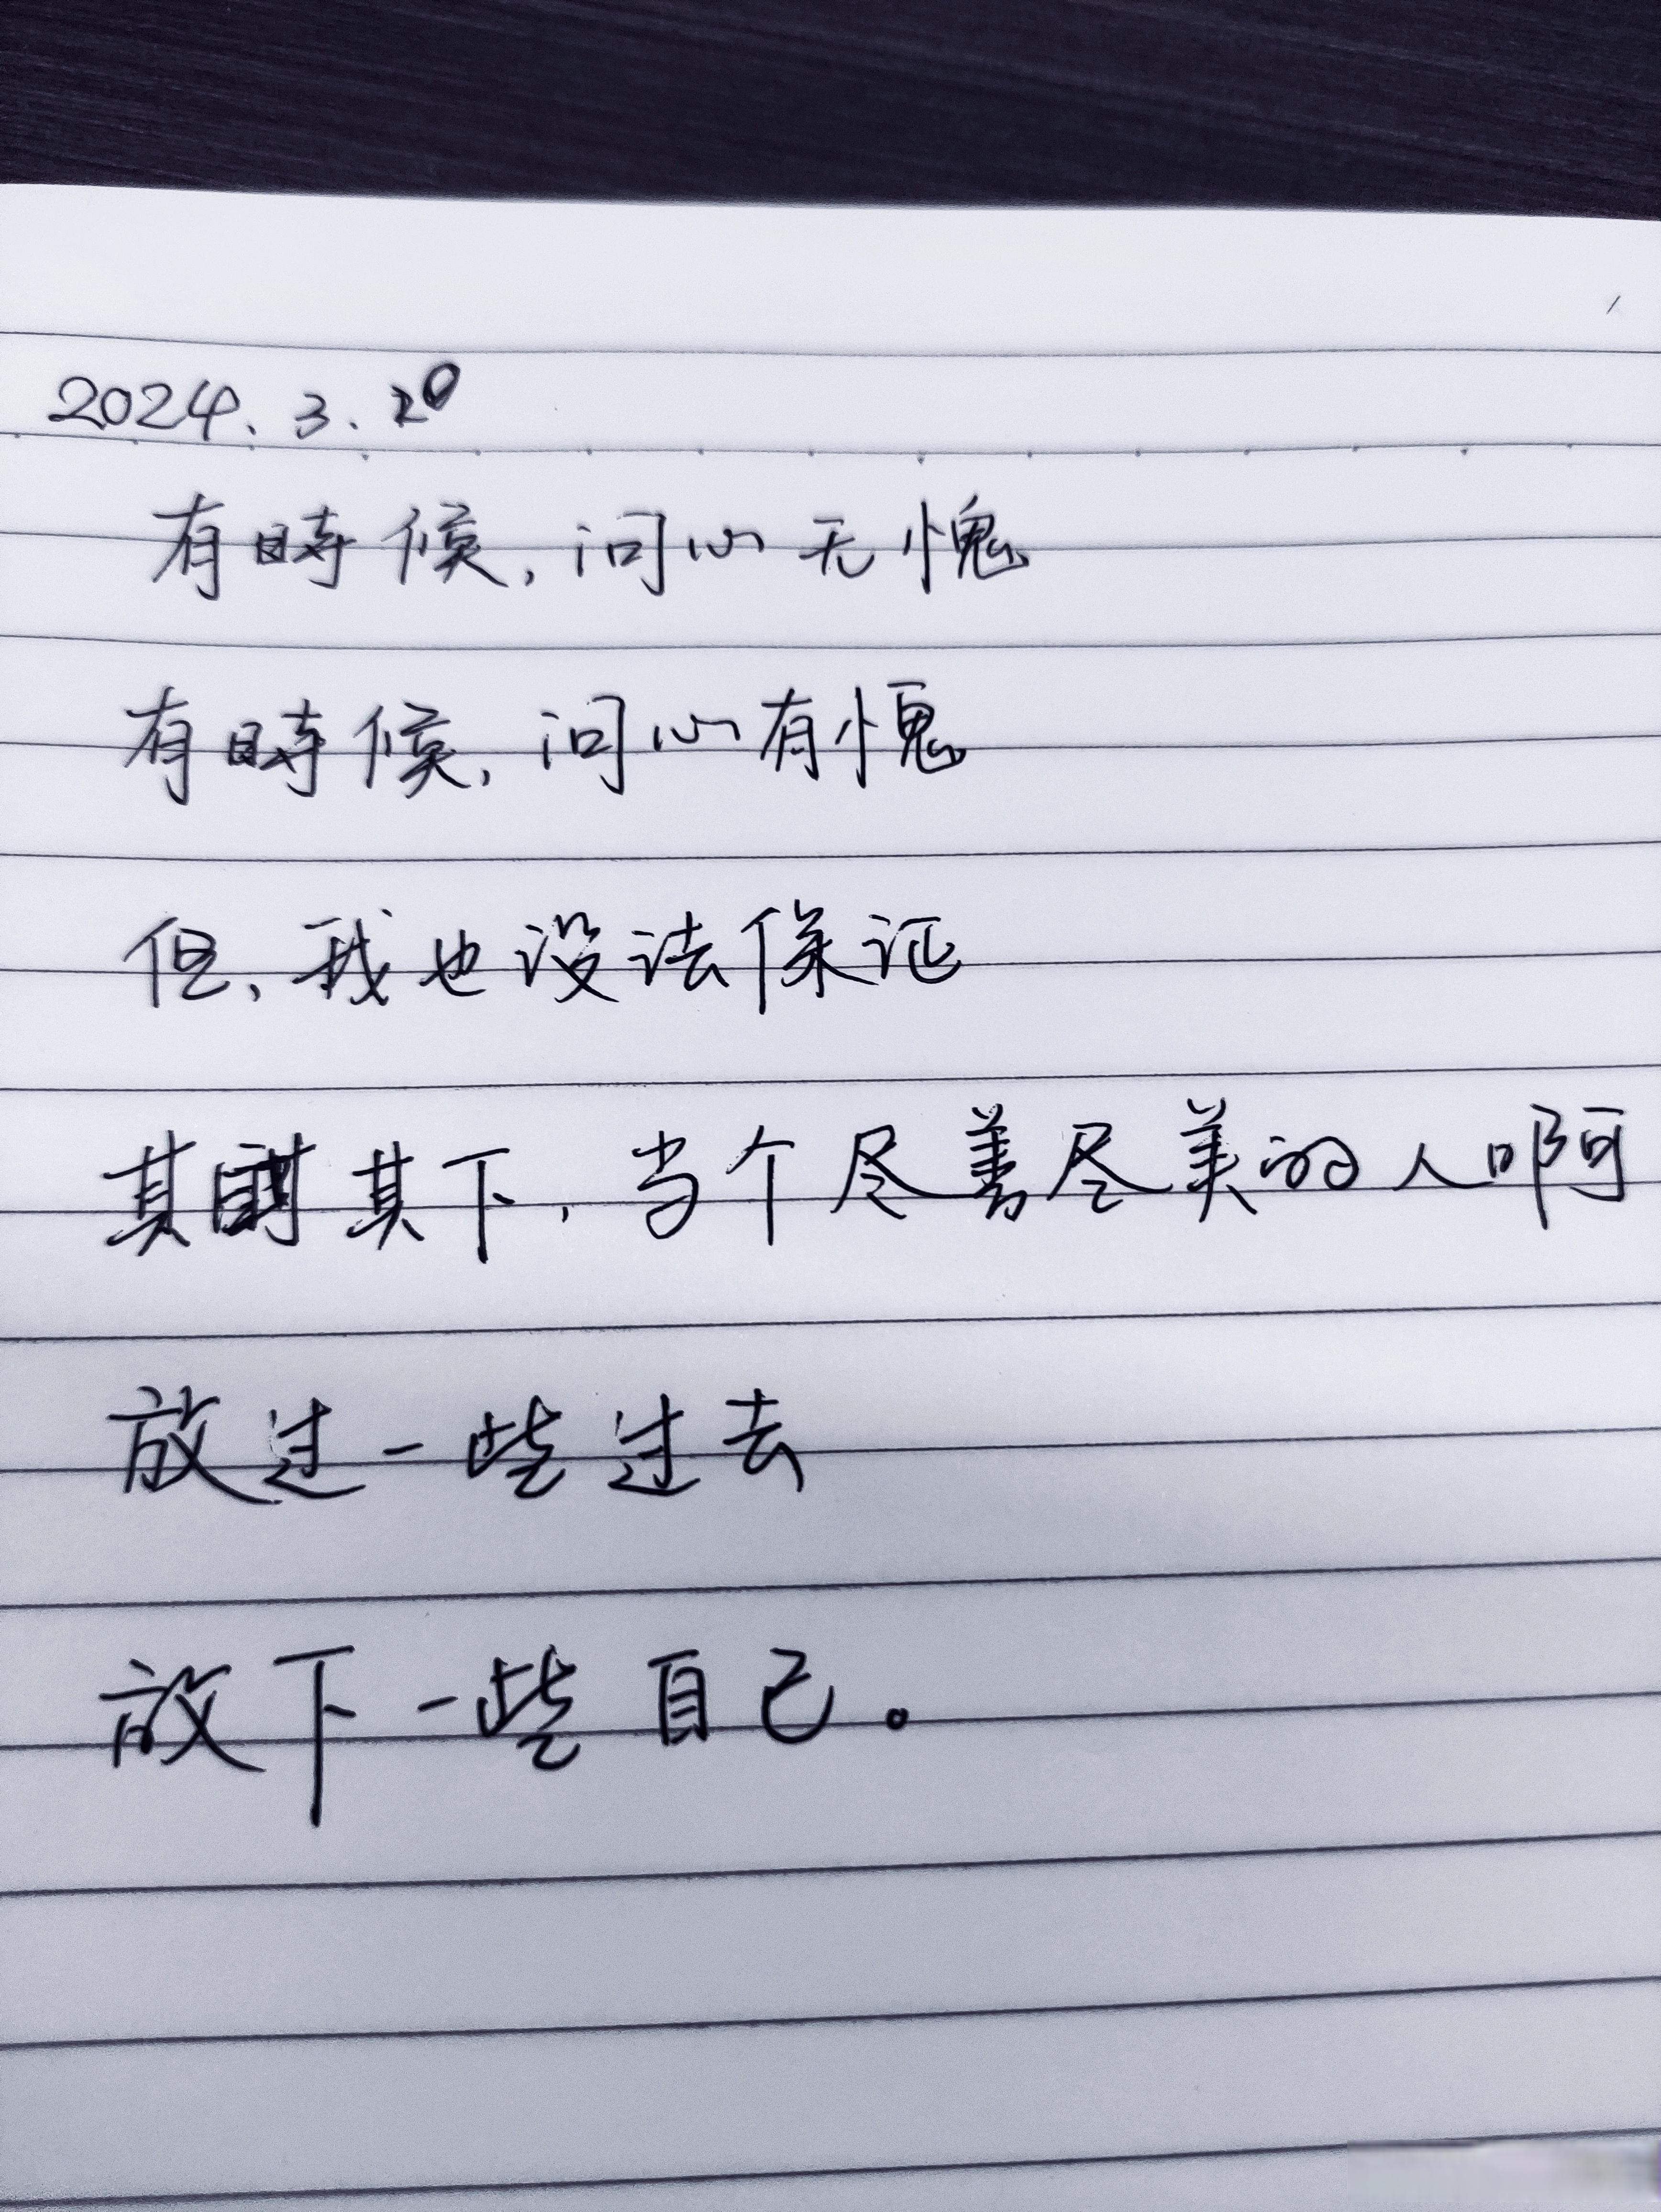 2024.3.20
有時候，问心无愧
有時候，问心有愧
但、我也没法保证
其 其下，当个尽善尽美的人啊
放过一些过去
放下一些自己。